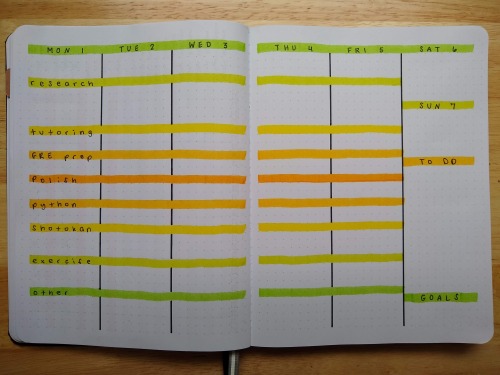 MON 1 TUE 2 WED 3 THU 4 FRI 5 SAT 6
research
SUN 7
tutoring
GRE prep
TO DO
polish
python
shotokan
exercise
other
GOALS